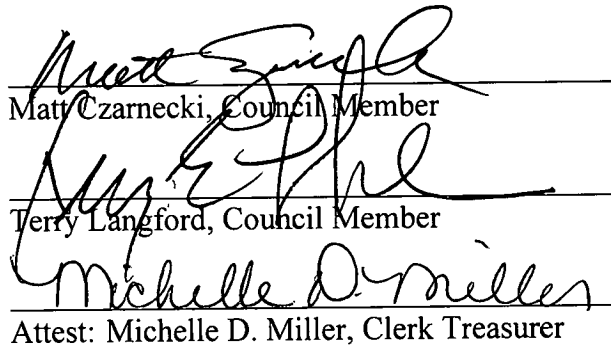 Matt
Matt Czarnecki, Council Member
Terry Langford, Council Member
Michelle D. Miller
Attest: Michelle D. Miller, Clerk Treasurer